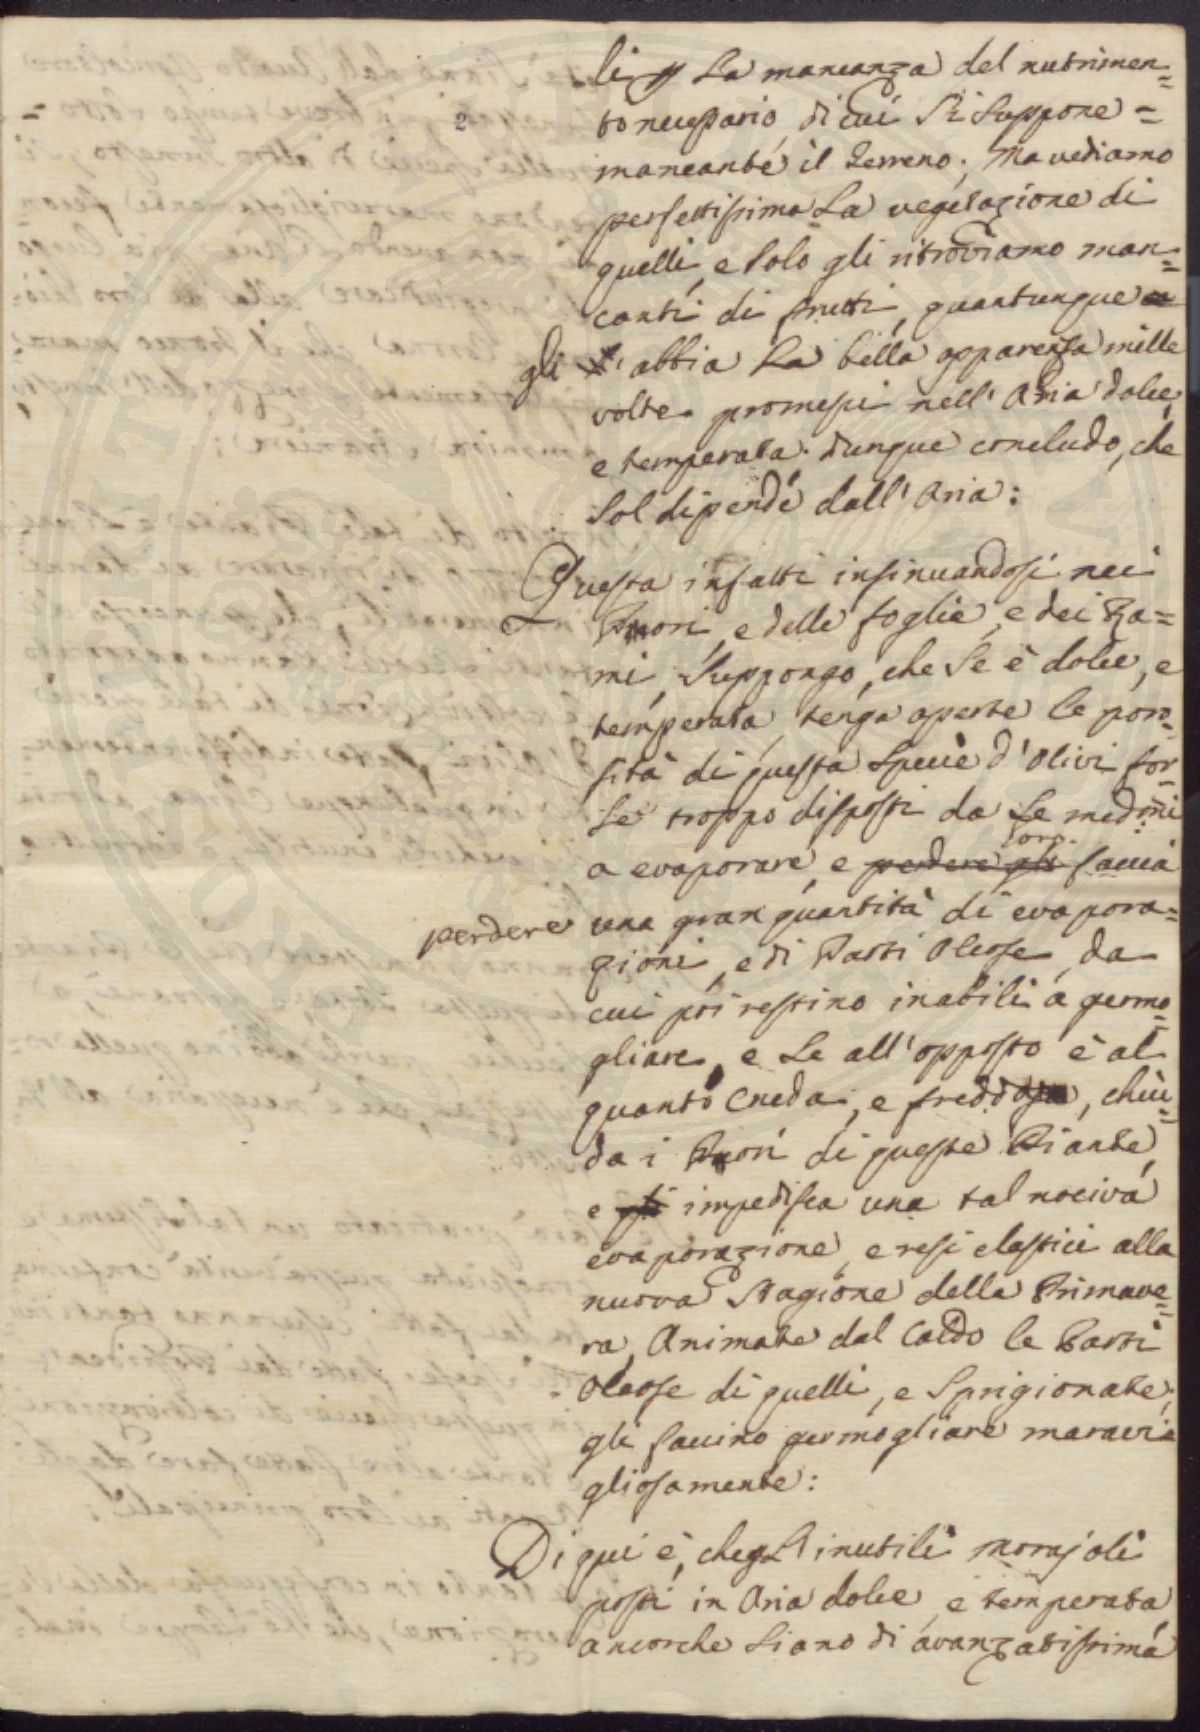 2
li La mancanza del nutrimen=
to necessario, di cui si suppone =
mancante il Terreno; Ma vediamo
perfettissima La vegetazione di
quelli, e solo gli ritroviamo man=
canti di frutti, quantunque
gli abbia La bella apparenza mille
volte promessi nell'Aria dolce,
e temperata. Dunque concludo, che
sol dipende dall'Aria:
Questa infatti insinuandosi nei
Pori, e delle foglie, e dei Ra=
mi, suppongo, che se è dolce, e
temperata, tenga aperte le poro=
sità di questa specie d'Olivi for=
se troppo disposti da se med:mi
a evaporare, e perdere gli loro faccia
perdere una gran quantità di evapora=
zioni, e di Parti Oleose, da
cui poi restino inabili a germo=
gliare, e se all'opposto è al
quanto Cruda, e fredda, chiu=
da i Pori di queste Piante,
e impedisca una tal nociva
evaporazione, e resi elastici alla
nuova Stagione della Primave=
ra, Animate dal Caldo le Parti
Oleose di quelli, e Sprigionate,
gli faccino germogliare maravi=
gliosamente:
Di qui è, che gl'inutili morajoli
posti in Aria dolce, e temperata
ancorche siano di avanzatissima